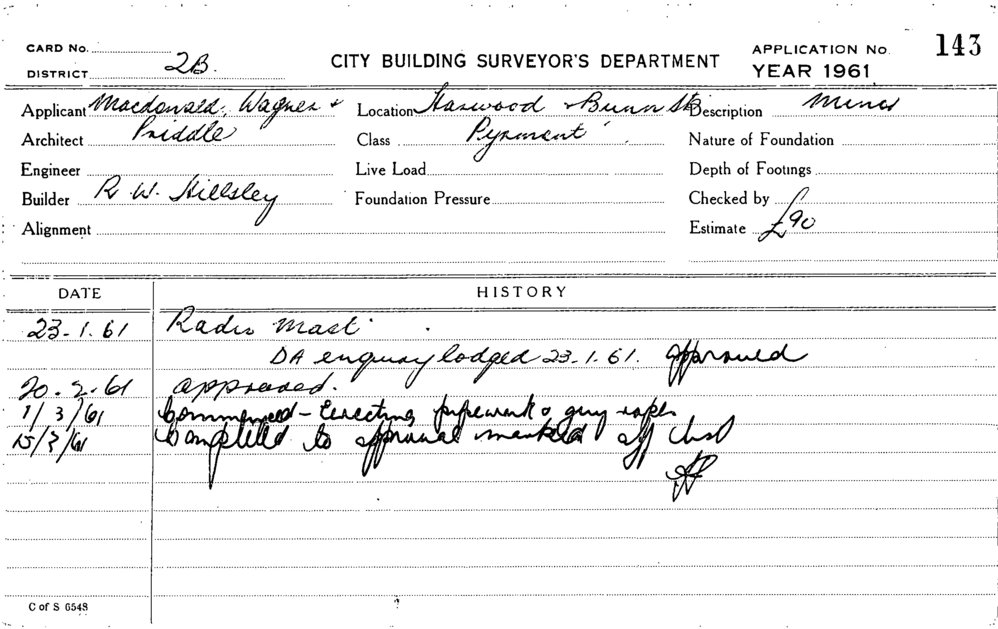 CARD No. CITY BUILDING SURVEYOR'S DEPARTMENT APPLICATION No. 143
DISTRICT 2B. YEAR 1961
Applicant Macdonald, Wagner & Location Harwood & Bunn Sts Description Minor
Architect Priddle Class Pyrmont Nature of Foundation
Engineer Live Load Depth of Footings
Builder R. W. Hillsley Foundation Pressure Checked by
Alignment Estimate £90
DATE HISTORY
23-1.61 Radio Mast
DA enquiry lodged 23-1.61. approved
20-2-61 approved.
1/3/61 Commenced - Erecting pipework & guy ropes
15/3/61 Completed to approval marked off
C of S 6548